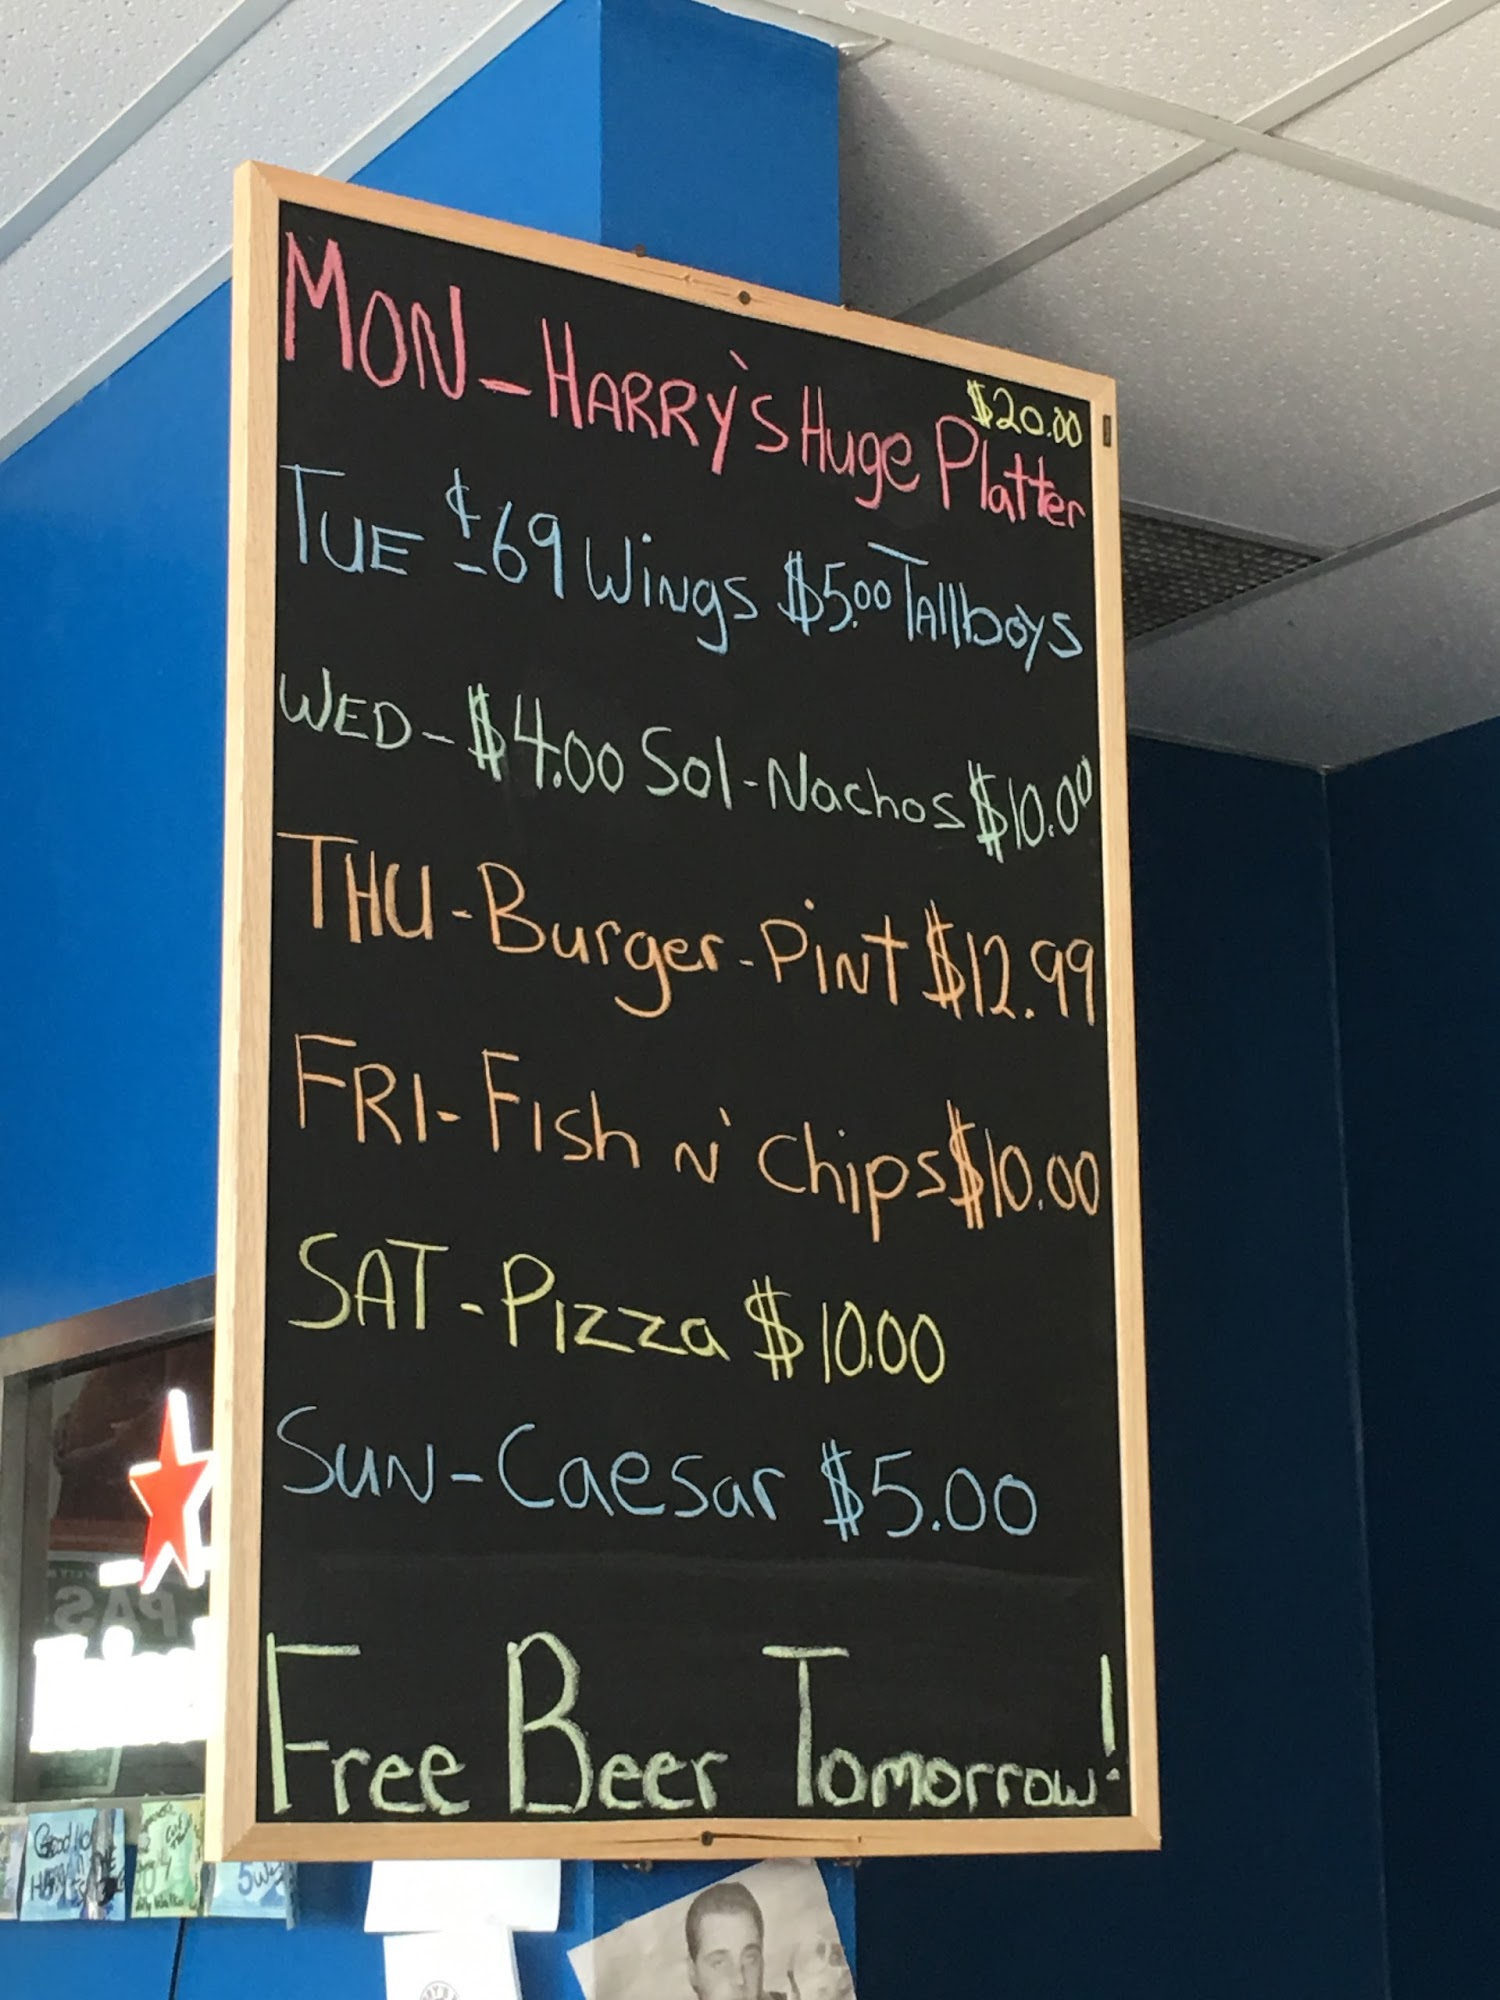 $20.00
MON-HARRY'S Huge Platter
TUE ¢-69 Wings $5.00 Tallboys
WED-$4.00 Sol-Nachos $10.00
THU-Burger-Pint $12.99
FRI-Fish n' Chips $10.00
SAT-Pizza $10.00
SUN-Caesar $5.00
Free Beer Tomorrow!